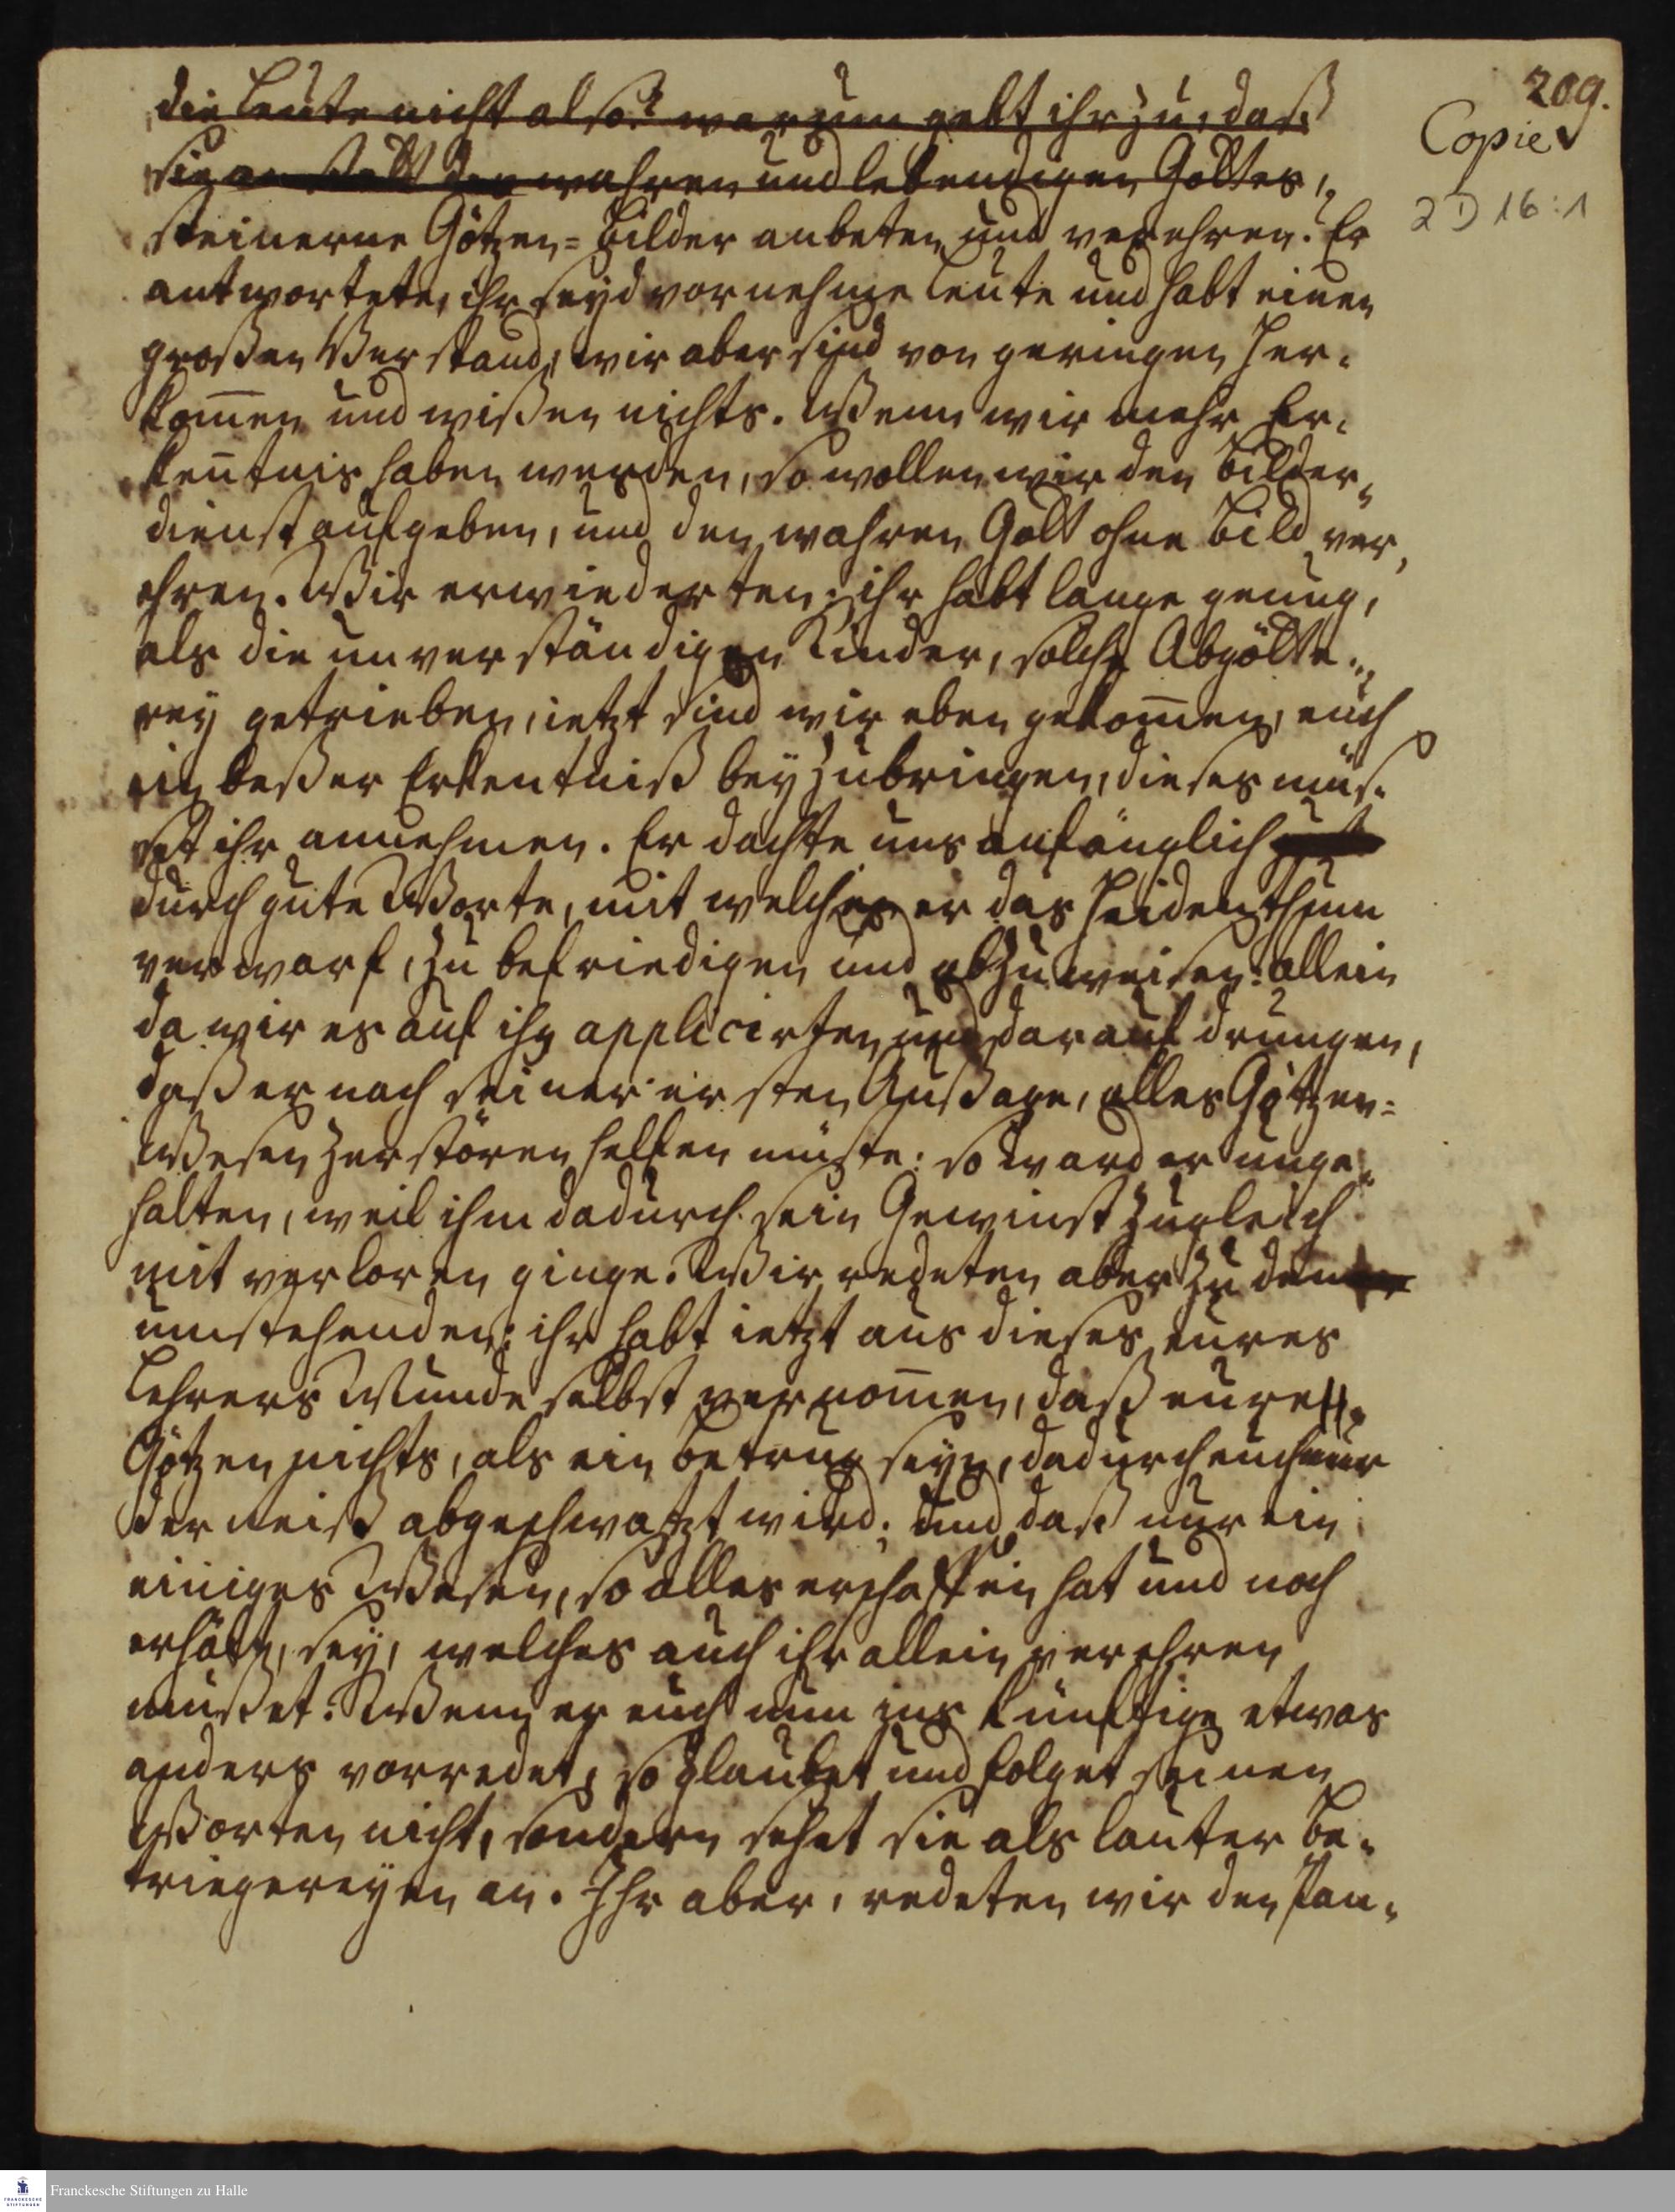 209.
Copie
2 D 16:1
die Leute nicht also? warum gebt ihr zu, daß
sie an statt des wahren und lebendigen Gottes,
steinerne Götzen=Bilder anbeten und verehren? Er
antwortete, ihr seyd vornehme Leute und habt einen
großen Verstand, wir aber sind von geringen Her-
kom̄en und wißen nichts. Wenn wir mehr Er-
ken̄tnis haben werden, so wollen wir den Bilder-
dienst aufgeben, und den wahren Gott ohne Bild ver-
ehren. Wir erwiederten: ihr habt lange genug,
als die unverständigen Kinder, solche Abgötte-
rey getrieben, ietzt sind wir eben gekom̄en, euch
ein beßer Erkentniß beyzubringen, dieses müs-
set ihr annehmen. Er dachte uns anfänglich
durch gute Worte, mit welchen er das Heidenthum
verwarf, zu befriedigen und abzuweisen: allein
da wir es auf ihn applicirten und darauf drungen,
daß er nach seiner ersten Außage, alles Götzen=
Wesen zerstören helfen müste: so ward er unge-
halten, weil ihm dadurch sein Gewinst zugleich
mit verloren ginge. Wir redeten aber zu den
umstehenden: ihr habt ietzt aus dieses eures
Lehrers Munde selbst vernom̄en, daß eure
Götzen nichts, als ein Betrug seyn, dadurch euch nur
der Reiß abgeschwatzt wird; und daß nur ein
einiges Wesen, so alles erschaffen hat und noch
erhält, sey, welches auch ihr allein verehren
müßet: Wenn er euch nun ins künftige etwas
anders vorredet, so glaubet und folget seinen
Worten nicht, sondern sehet sie als lauter Be-
triegereyen an. Ihr aber, redeten wir den Pan-
Franckesche Stiftungen zu Halle